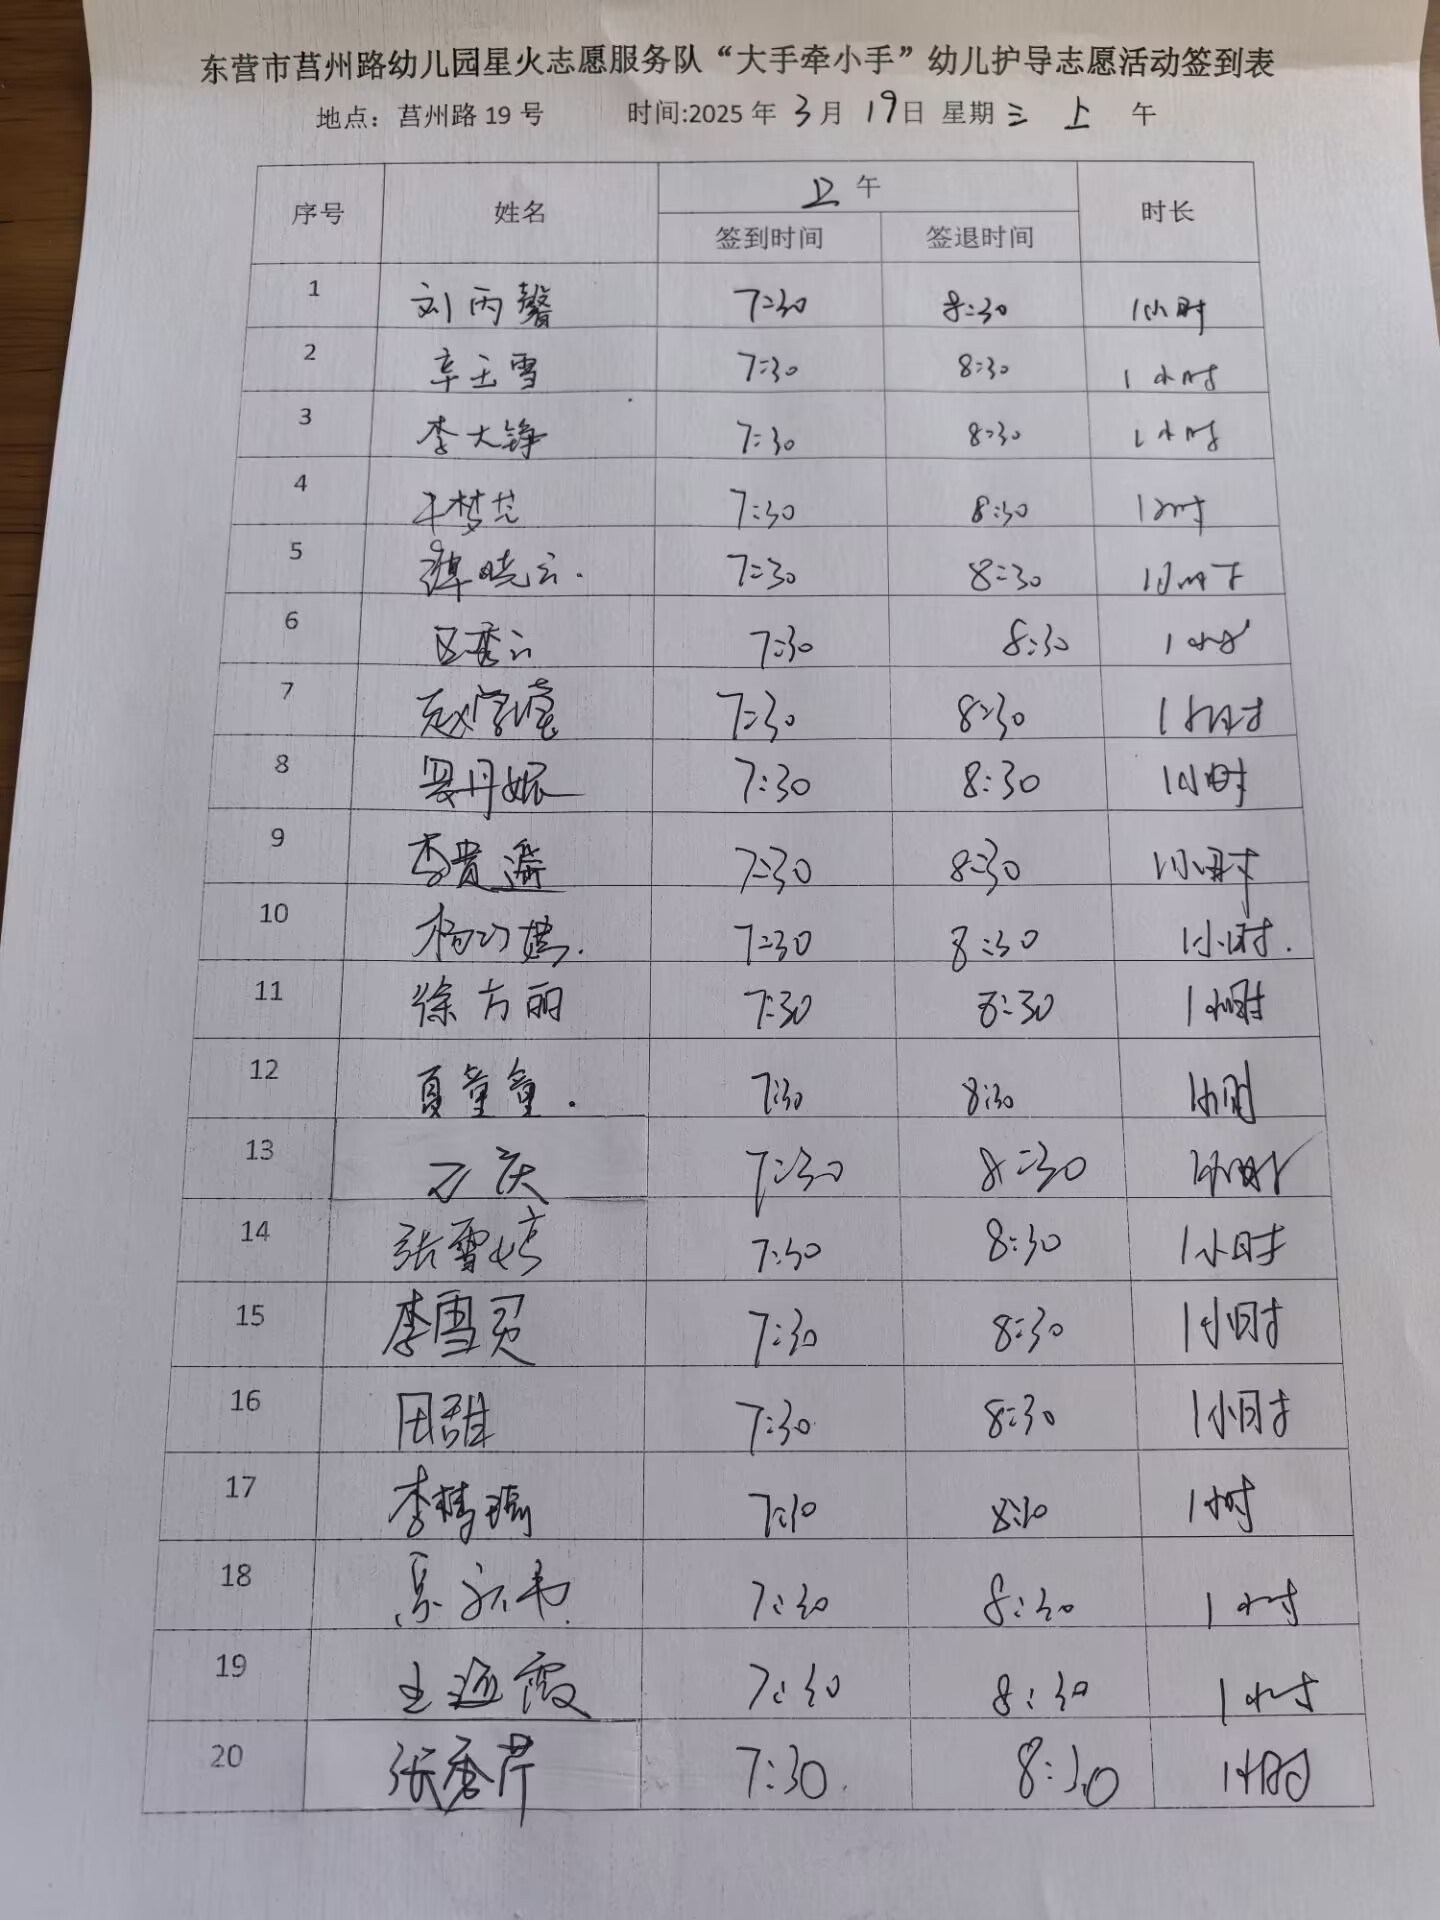 东营市莒州路幼儿园星火志愿服务队“大手牵小手”幼儿护导志愿活动签到表
地点：莒州路 19 号 时间:2025 年 3 月 19 日 星期 三 上 午
序号 姓名 上 午 时长
签到时间 签退时间
1 刘丙馨 7:30 8:30 1小时
2 辛玉雪 7:30 8:30 1小时
3 李大铮 7:30 8:30 1小时
4 7:30 8:30 1小时
5 谭晓云. 7:30 8:30 1小时
6 7:30 8:30 1小时
7 赵学莹 7:30 8:30 1小时
8 7:30 8:30 1小时
9 李贵 7:30 8:30 1小时
10 杨 7:30 8:30 1小时.
11 徐方丽 7:30 8:30 1小时
12 夏童童. 7:30 8:30 1小时
13 万庆 7:30 8:30 1小时
14 张雪婷 7:30 8:30 1小时
15 李雪 7:30 8:30 1小时
16 田甜 7:30 8:30 1小时
17 李梦瑶 7:30 8:30 1小时
18 7:30 8:30 1小时
19 王 霞 7:30 8:30 1小时
20 张秀芹 7:30 8:30 1小时